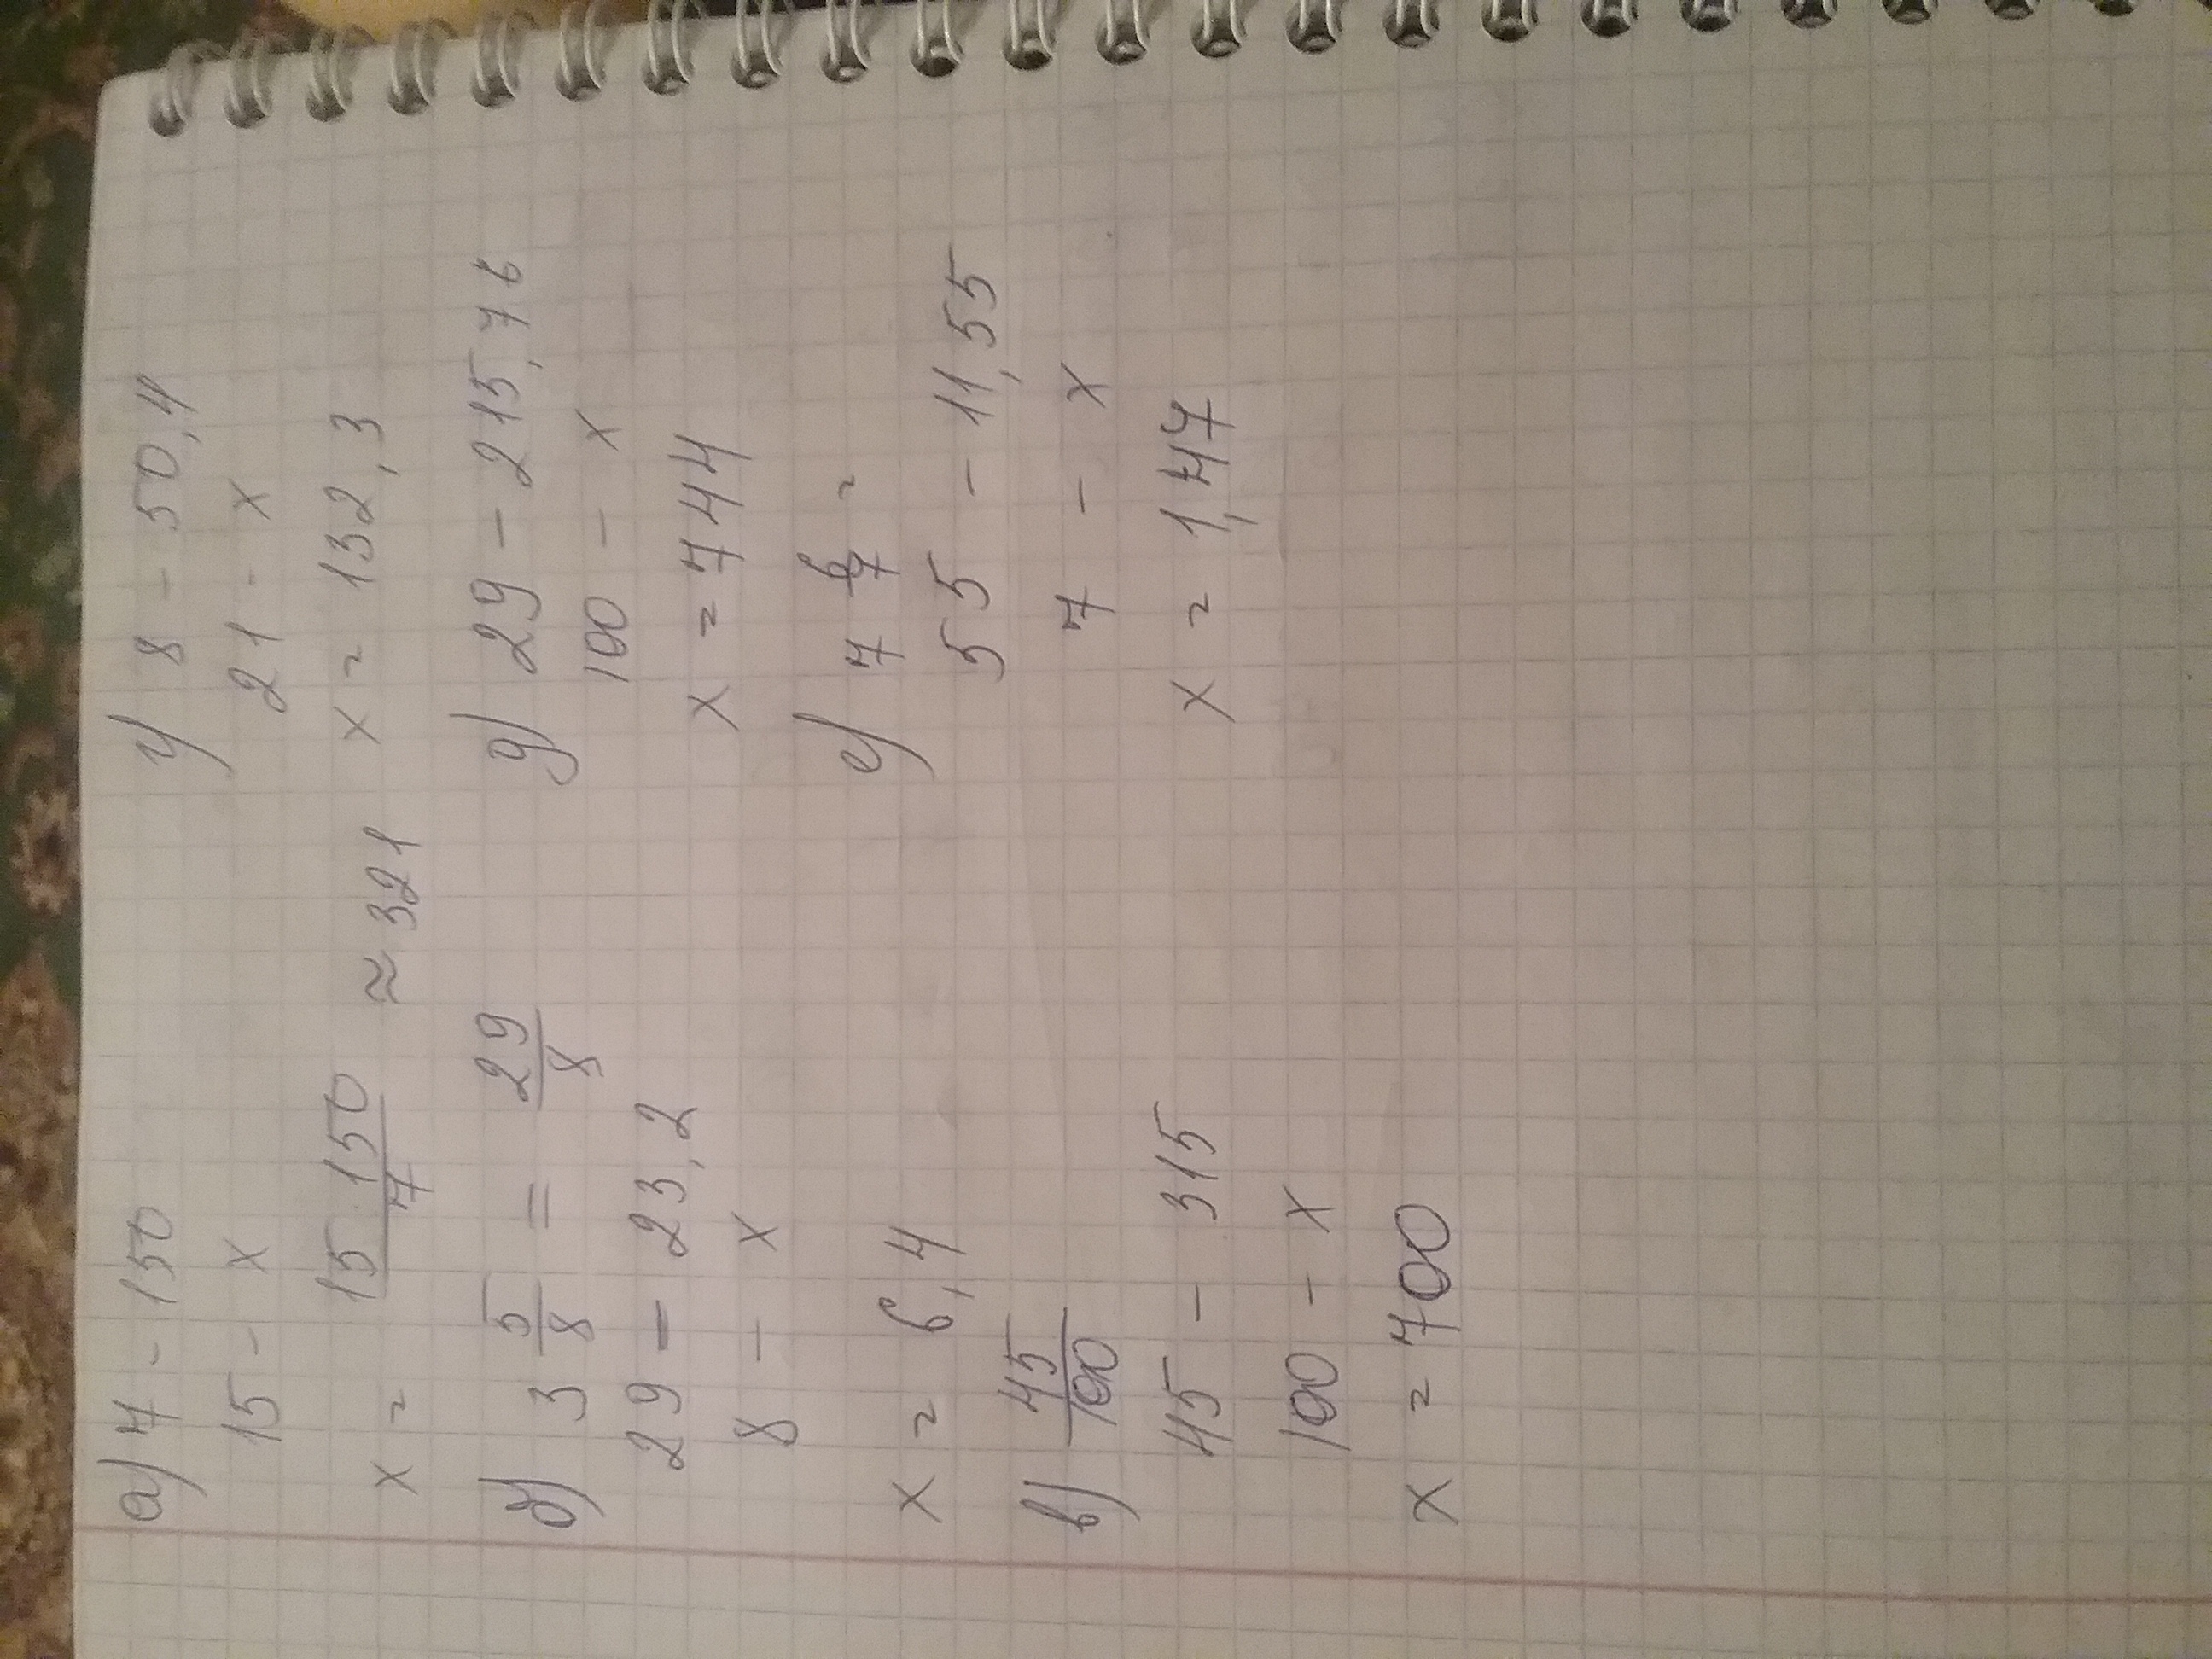 а) 7 - 150
15 - x
x = 15·150/7 ≈ 321
б) 3 5/8 = 29/8
29 - 23,2
8 - x
x = 6,4
в) 45/100
45 - 315
100 - x
x = 700
г) 8 - 50,4
21 - x
x = 132,3
д) 29 - 215,76
100 - x
x = 744
е) 7 6/7 =
55 - 11,55
7 - x
x = 1,47